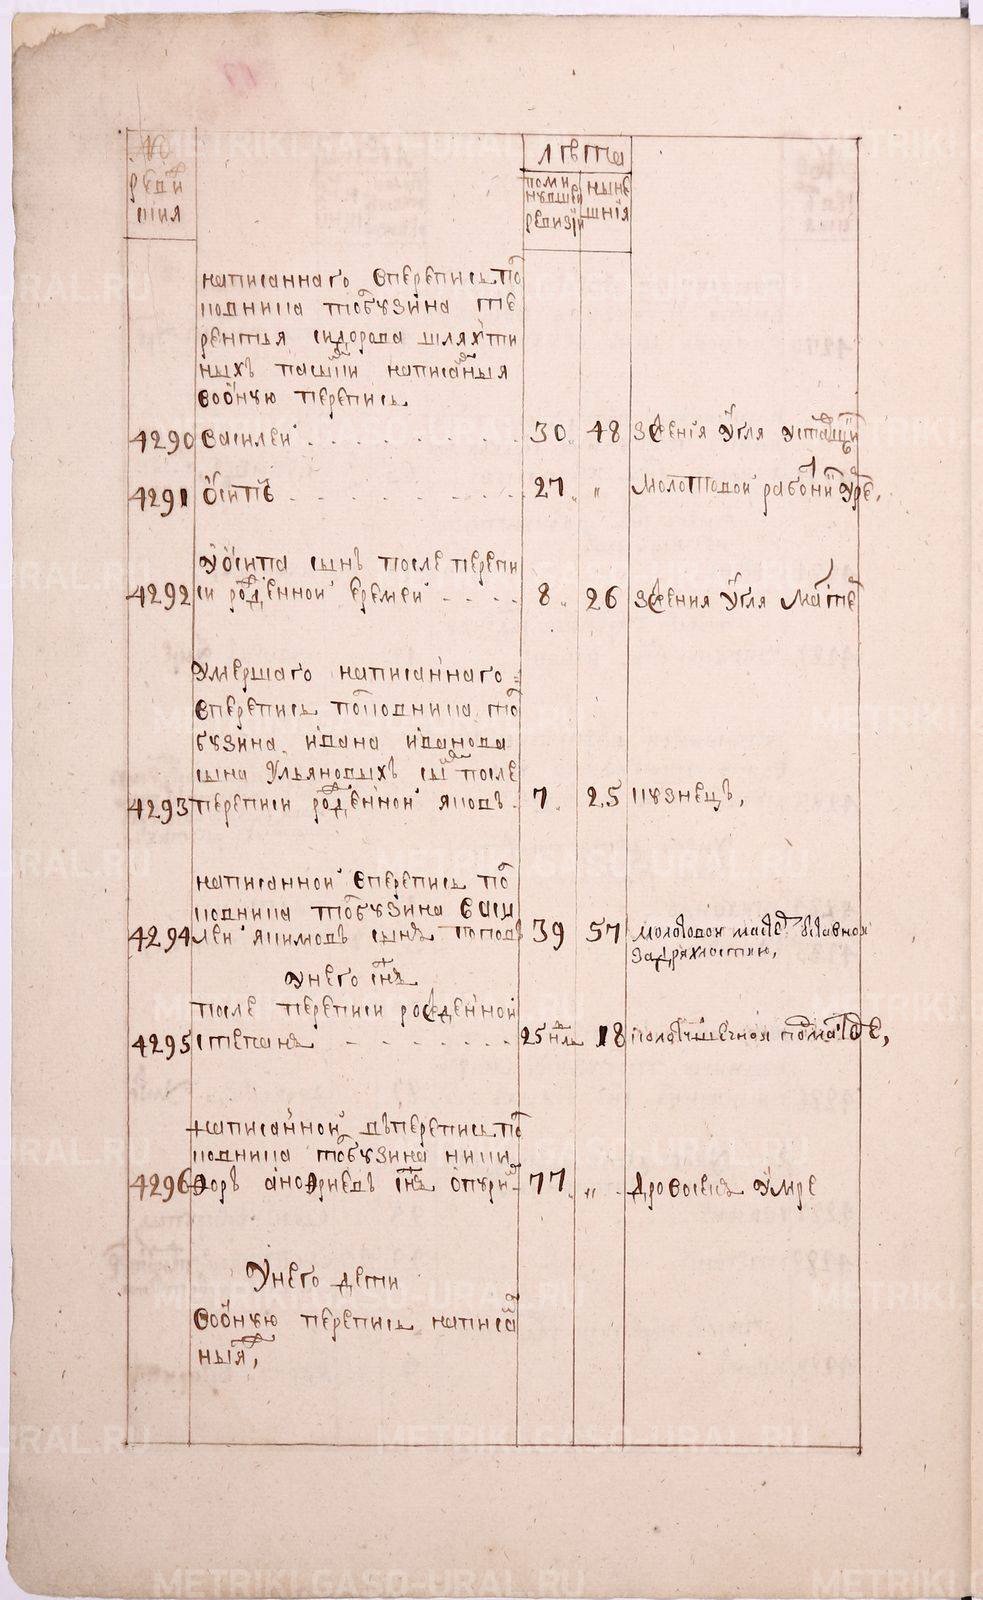 №
реви
зия
лѣта
поми
нувшей
ревизіи
ныне
шнія
написаннаго вперепись по
кодника тобузина те
рентья сидорова шляхти
ныхъ пасынки написанныя
воӧную перепись
4290 Василей 30 48 зженія угля уставщикъ
4291 Осипъ 27 " молотовой работникъ умре,
У осипа сынъ после перепи
4292 си рожденной еремей 8 26 зжения угля мастеръ
Умершаго написаннаго
вперепись покодника то
бузина ивана иванова
сына Ульяновыхъ сынъ после
4293 переписи рожденной яковъ 7 25 кузнецъ,
написанной вперепись по
кодника тобузина васи
4294 лей якимовъ сынъ поповъ 39 57 молотовой мастеръ
задряхлостию,
Унего сынъ
после переписи рожденной
4295 степанъ 25 нль 18
написанной въперепись по
кодника тобузина ники
4296 форъ андриевъ сынъ 77 " дровосекъ умре
Унего дети
воӧную перепись написа
ныя,
METRIKI.GASO-URAL.RU